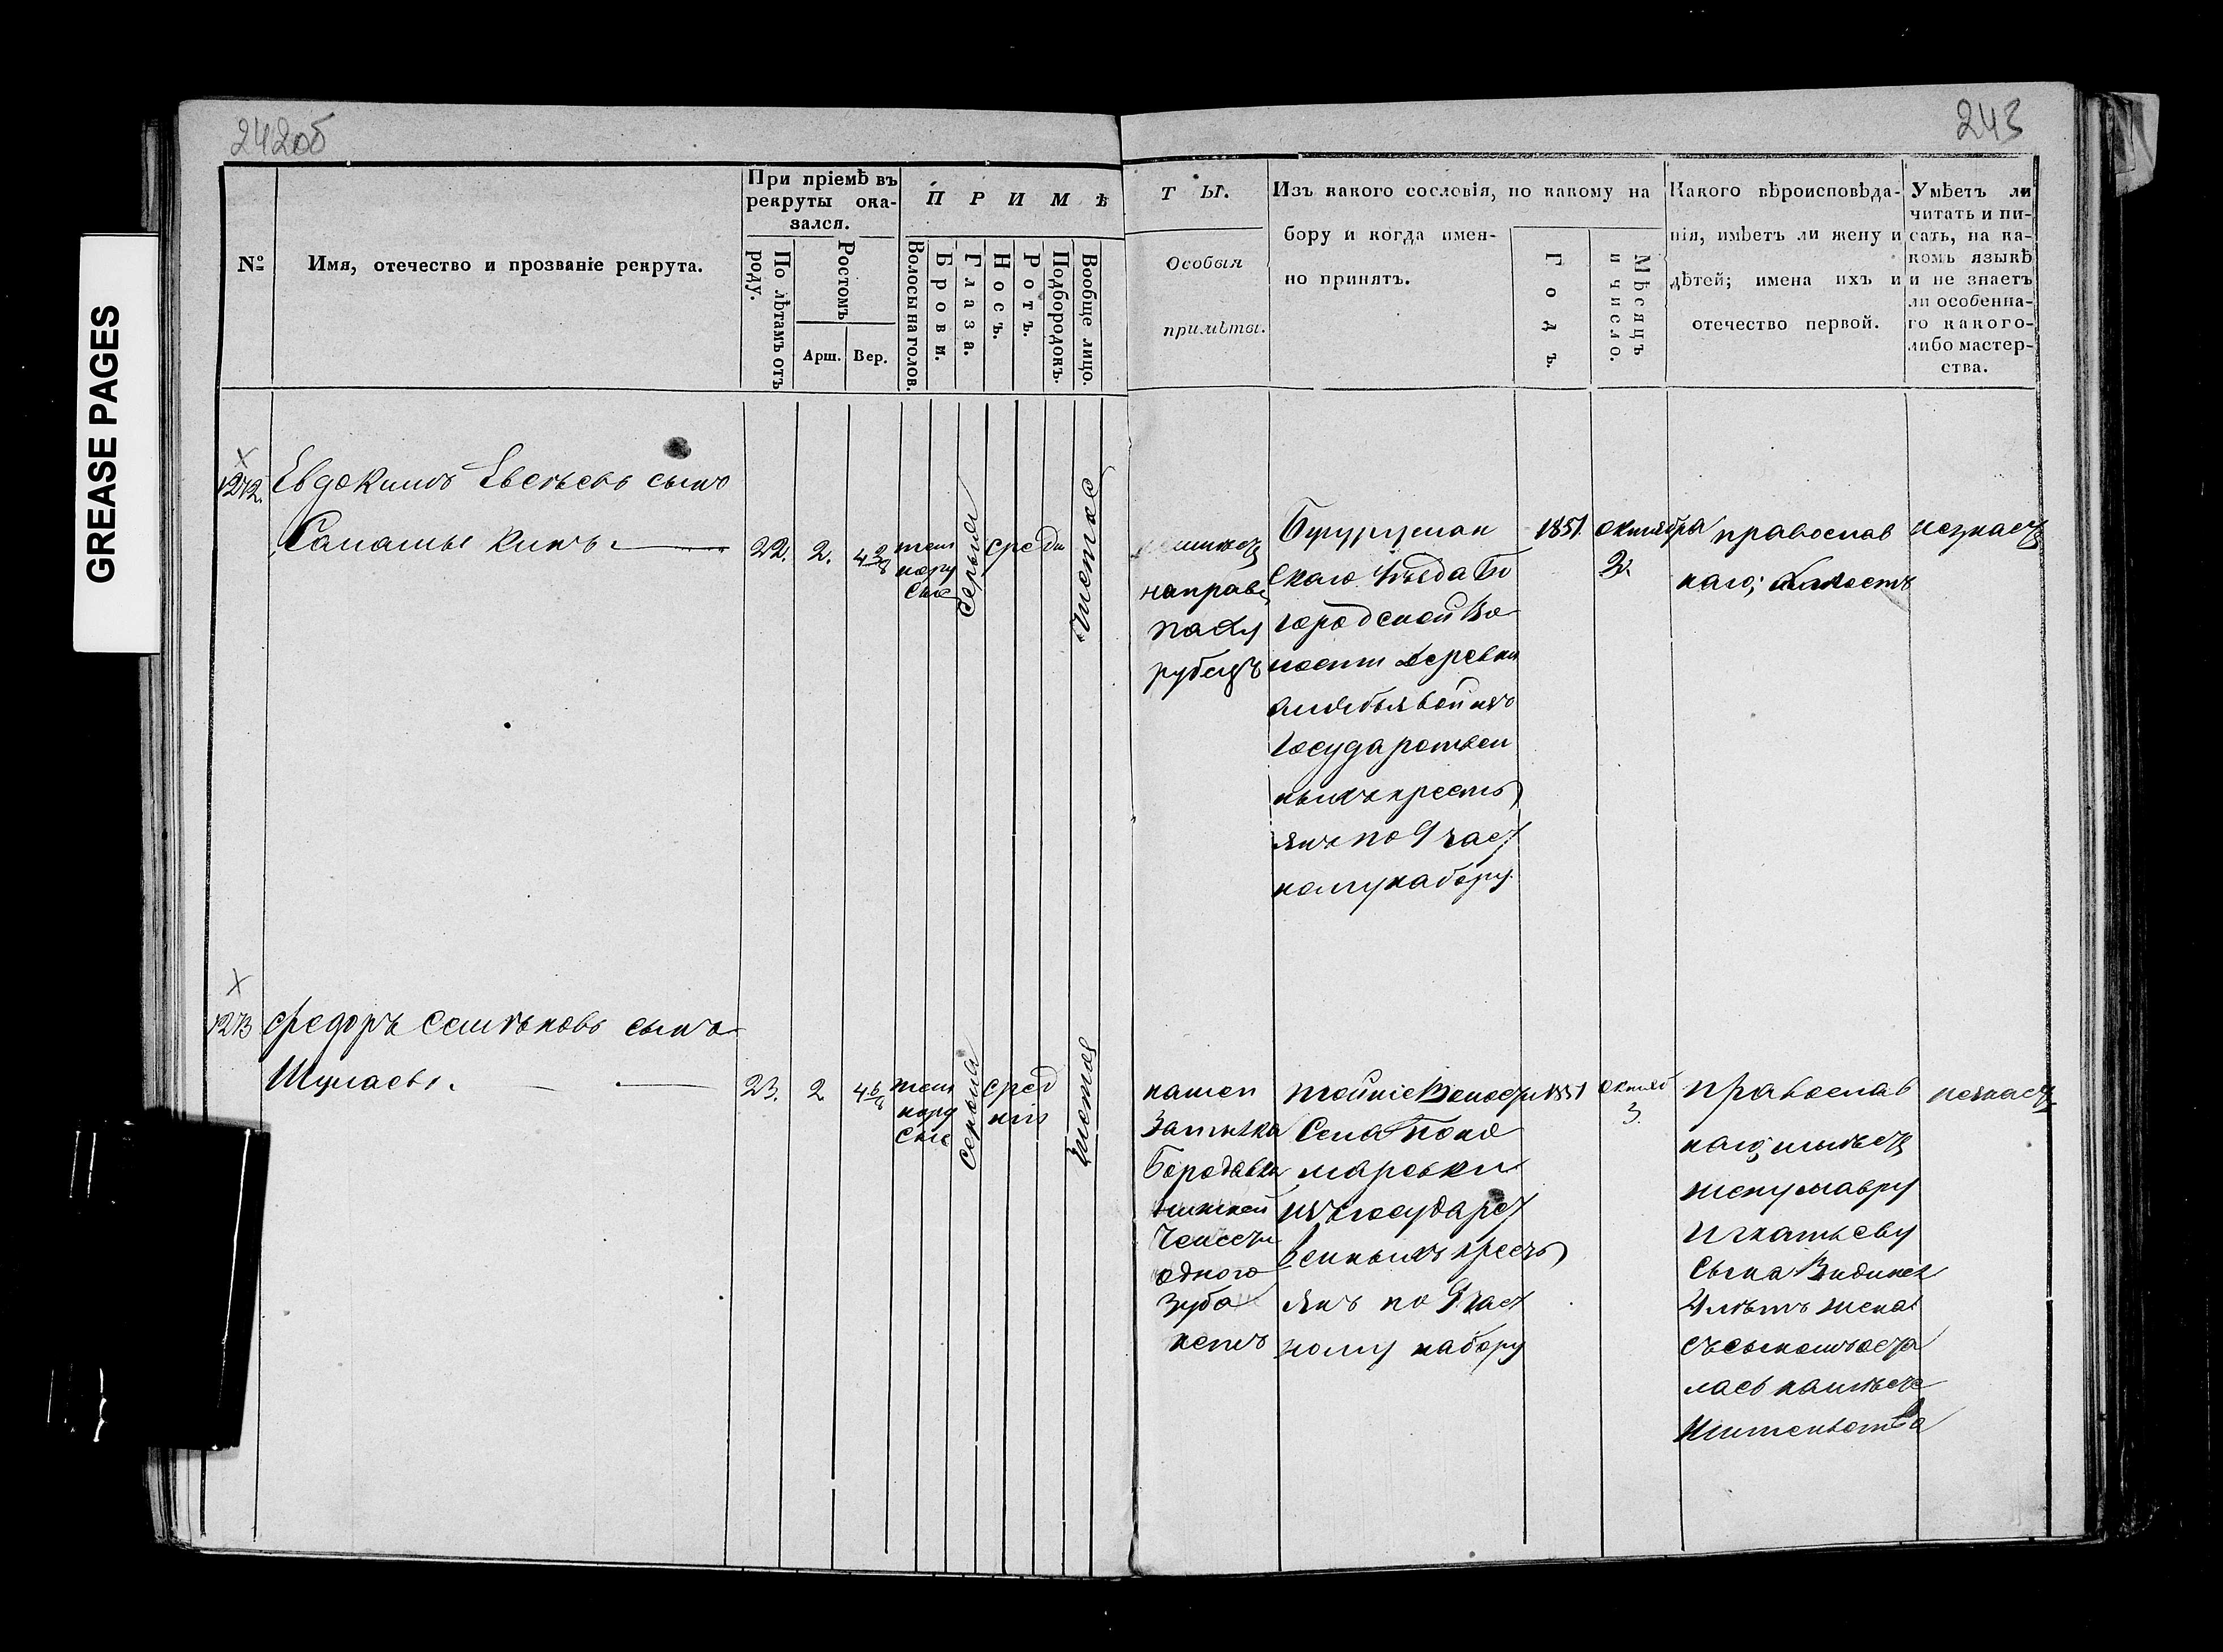 GREASE PAGES
242об
243
№
Имя, отечество и прозваніе рекрута.
При пріемѣ въ
рекруты ока-
зался.
По лѣтамъ отъ
роду.
Ростомъ
Арш.
Вер.
П Р И М Ѣ
Волосы на голов.
Брови.
Глаза.
Носъ.
Ротъ.
Подбородокъ.
Вообще лицо.
Т Ы.
Особыя
примѣты.
Изъ какого сословія, по какому на
бору и когда имен-
но принятъ.
Годъ.
Мѣсяцъ
и число.
Какого вѣроисповѣда-
нія, имѣетъ ли жену и
дѣтей; имена ихъ и
отечество первой.
Умѣетъ ли
читать и пи-
сать, на ка-
комъ языкѣ
и не знаетъ
ли особенна-
го какого-
либо мастер-
ства.
1272.
Евдокимъ Евсѣевъ сынъ
22.
2.
4 2/8
темн
нору
сые
серыя
сред
чистое
направ
паху
рубецъ
Бугуруслан
скаго Уѣзда Бо
городской Во
лости деревни
государствен
ныхъ кресть
янъ по 9 част
ному набору.
1851
октября
3.
православ
наго; холостъ
незнаетъ
1273
Федоръ Семѣновъ сынъ
Шулаевъ.
23.
2
4 6/8
темн
нору
сые
серыя
сред
ніе
чистое
на шеи
Бородавка
нижней
Челюсти
одного
зуба
нетъ
тойже Волости
Села Поно
маровки
изъ государст
венныхъ кресть
янъ по 9 част
ному набору
1851
октяб
3.
православ
наго; имѣетъ
жену мавру
Игнатьеву
сына
4 лѣтъ жена
съ сыномъ оста
лась намѣсте
жительства
незнаетъ